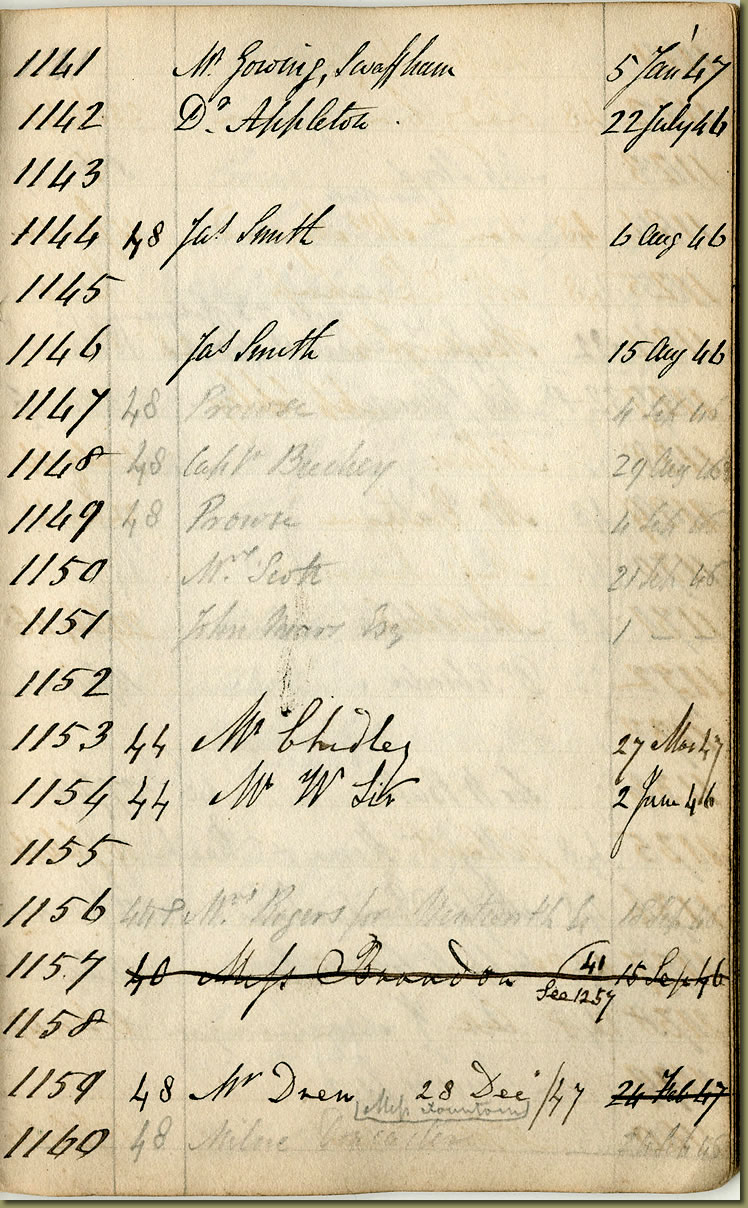 1141 Mr Gowing, Swaffham 5 Jan 47
1142 Do. Appleton. 22 July 46
1143
1144 48 Jas Smith 6 Aug 46
1145
1146 Jas Smith 15 Aug 46
1147 48 Prowse 4 Sep 46
1148 48 Captn 29 Aug 46
1149 48 Prowse 4 Sep 46
1150 Mrs Scott 21 Sep 46
1151 John Esq 1
1152
1153 44 Mr Chidley 27 Mar 47
1154 44 Mr W 2 June 46
1155
1156 Mrs Rogers for 18 Sep 46
1157 48 Miss Brandon 41 15 Sep 46
See 1257
1158
1159 48 Mr Dren 28 Decr /47 24 Feb 47
Miss Fountain
1160 48 Milne 46